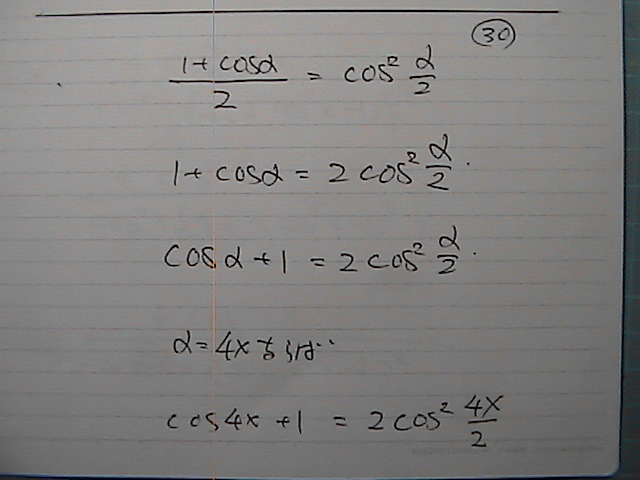 ㉚
(1+cosα)/2 = cos² α/2
1+cosα = 2cos² α/2.
cosα+1 = 2cos² α/2.
α=4xならば‥
cos4x+1 = 2cos² 4x/2